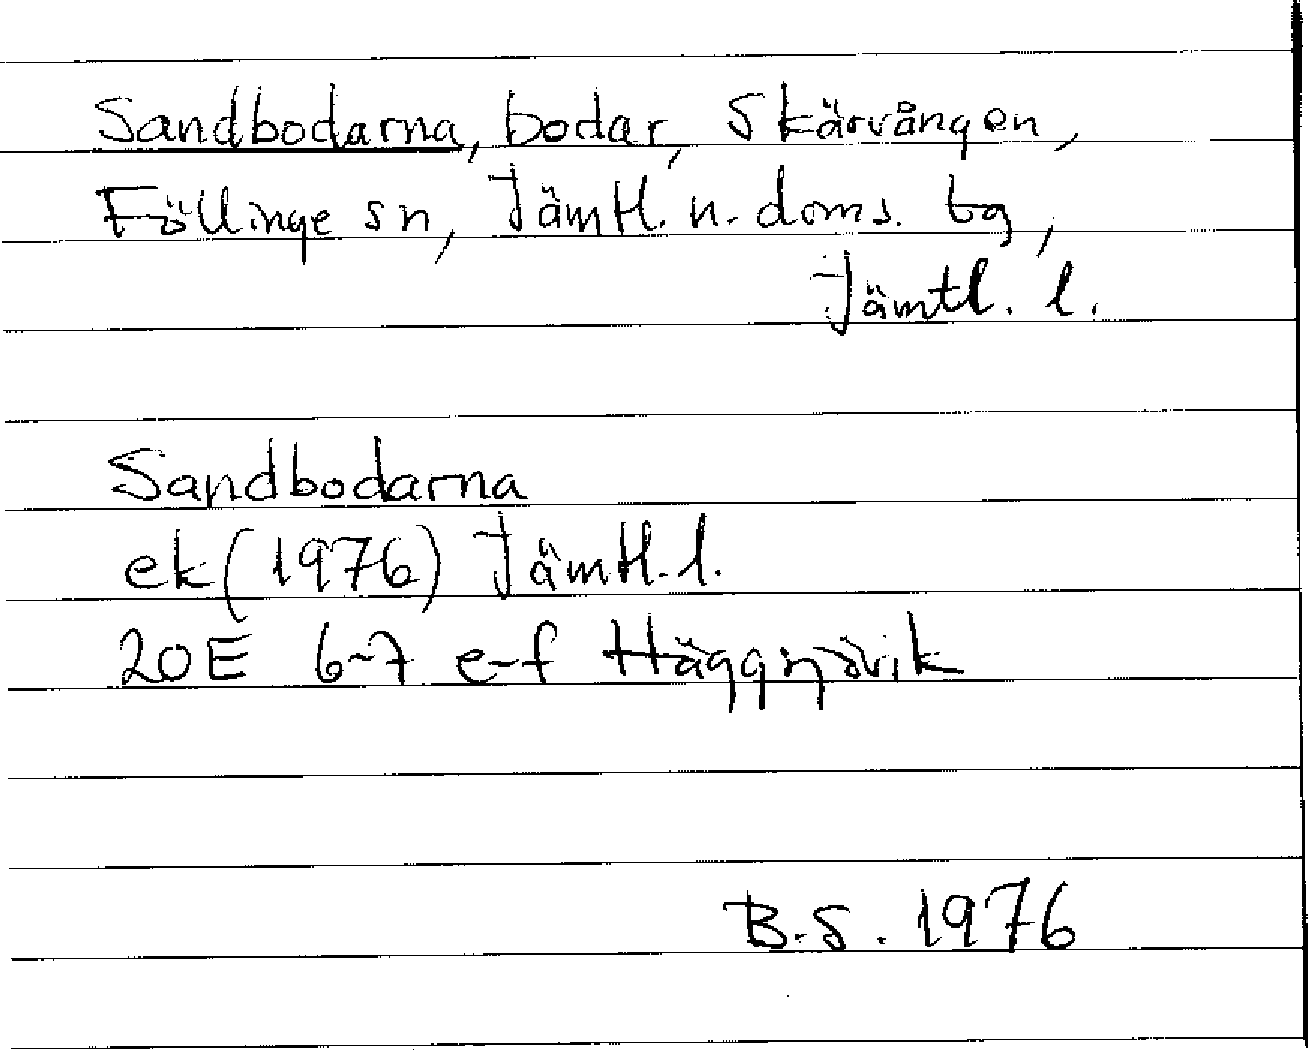 Sandbodarna, bodar, Skärvången,
Föllinge sn, Jämtl. n. doms. tg,
Jämtl. l.
Sandbodarna
ek (1976) Jämtl. l.
20E 6-7 e-f Häggnjövik
B.S. 1976